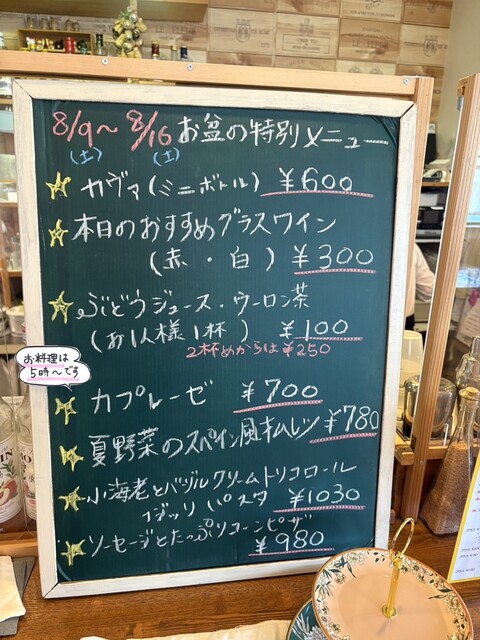 8/9～8/16 お盆の特別メニュー
(土) (土)
☆ カヴァ(ミニボトル) ¥600
☆ 本日のおすすめグラスワイン
(赤・白) ¥300
☆ ぶどうジュース・ウーロン茶
(お1人様1杯) ¥100
2杯めからは¥250
お料理は
5時〜です
☆ カプレーゼ ¥700
☆ 夏野菜のスペイン風オムレツ ¥780
☆ 小海老とバジルクリームトリコロール
フジッリパスタ ¥1030
☆ ソーセージとたっぷりコーンピザ
¥980